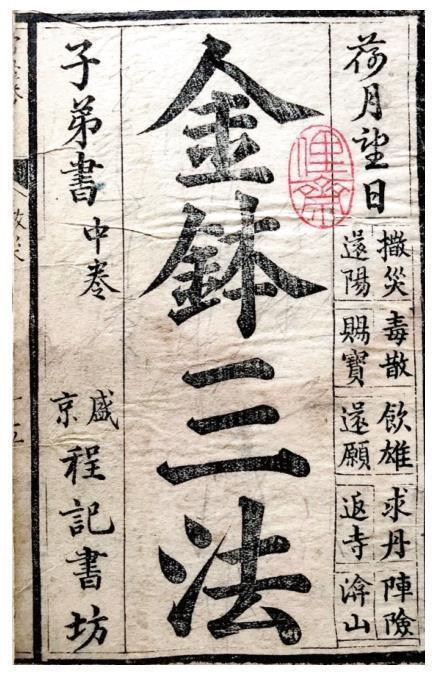 荷月望日
撒災 毒散 飲雄 求丹 陣險
還陽 賜寶 還願 返寺 渰山
金鉢三法
子弟書 中卷
盛京 程記書坊